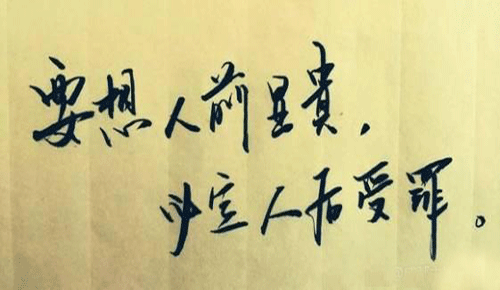 要想人前显貴,
必定人后受罪。